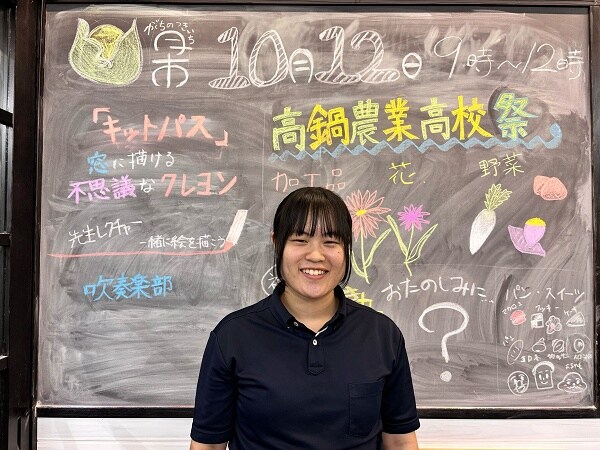 がちのつきいち
市 10月12日 9時～12時
「キットパス」
窓に描ける
不思議なクレヨン
先生レクチャー
一緒に絵を描こう
吹奏楽部
高鍋農業高校祭
加工品 花 野菜
おたのしみに..
?
パン・スイーツ
マカロン クッキー ケーキ
パン